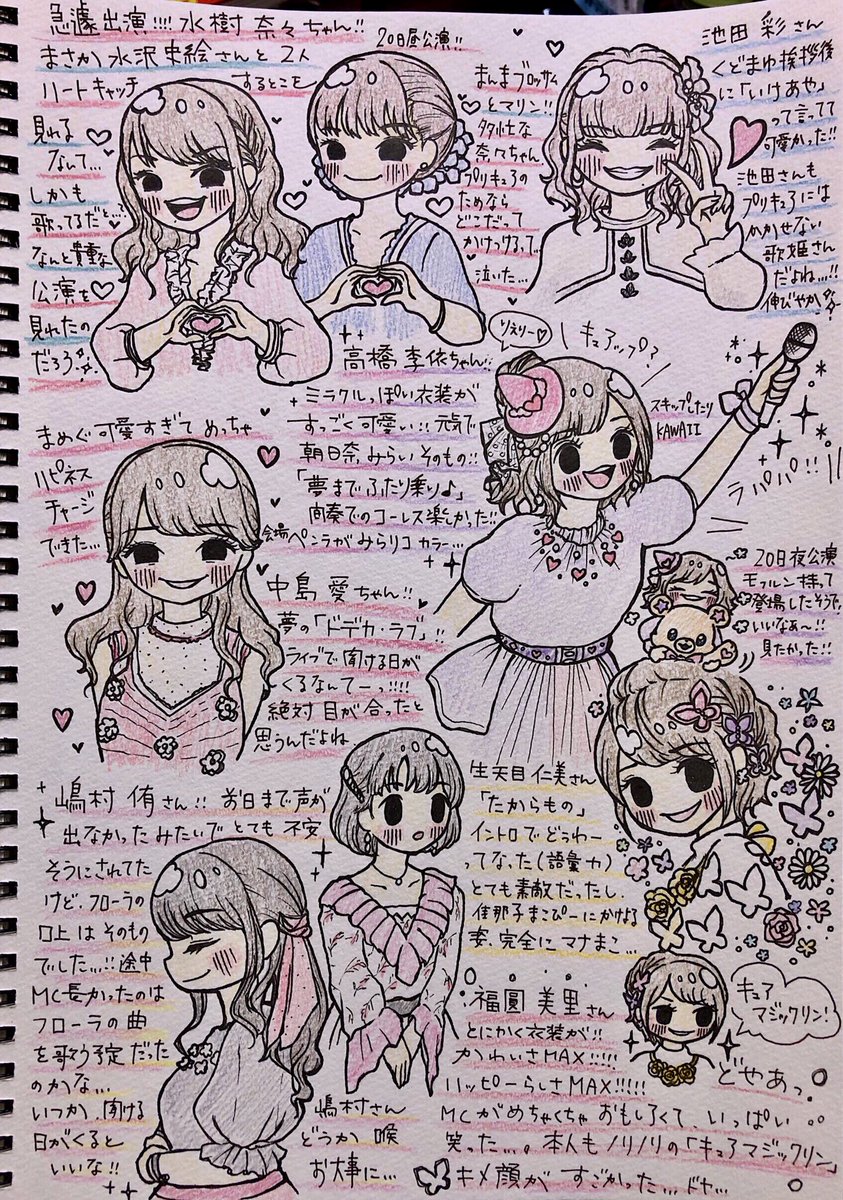 急遽出演!!!! 水樹奈々ちゃん!!
20日昼公演!!
まさか水沢史絵さんと2人
ハートキャッチ
するとこを
見れる
なんて…
しかも
歌ってるだと…
なんと貴重な
公演を
見れたの
だろう
まんまブロッサム
とマリン!!
多忙な
奈々ちゃん
プリキュアの
ためなら
どこだって
かけつけるで
泣いた…
池田 彩さん
くどまゆ挨拶後
に「いけあや」
って言ってて
可愛かった!!
池田さんも
プリキュアには
かかせない
歌姫さん
だよね…!!
伸びやか
高橋 李依ちゃん!!
ミラクルっぽい衣装が
すっごく可愛い!! 元気で
朝日奈みらいそのもの!!
「夢までふたり乗り♪」
間奏でのコーレス楽しかった!!
会場ペンラがみらリコカラー…
りえりー♡
キュアップ?
スキップしたり
KAWAII
ラパパ!!
20日夜公演
モフルン持って
登場したそうで
いいなぁ〜!!
見たかった!!
まめぐ可愛すぎてめっちゃ
ハピネス
チャージ
できた…
中島 愛ちゃん!!
夢の「ドデカ・ラブ」!!
ライブで聞ける日が
くるなんてーっ!!!!
絶対目が合ったと
思うんだよね
生天目 仁美さん
「たからもの」
イントロでどぅわー
ってなった(語彙力)
とても素敵だったし、
佳那子まこぴーにかけよる
姿、完全にマナまこ…
嶋村 侑さん!! お日まで声が
出なかったみたいでとても不安
そうにされてた
けど、フローラの
口上はそのもの
でした…!! 途中
MC長かったのは
フローラの曲
を歌う予定だった
のかな…
いつか、聞ける
日がくると
いいな!!
嶋村さん
どうか喉
お大事に…
福圓 美里さん
とにかく衣装が!!
かわいさMAX!!!!
ハッピーらしさMAX!!!!!
MCがめちゃくちゃおもしろくて、いっぱい
笑った…。本人もノリノリの「キュアマジックリン」
キメ顔がすごかった…ドヤ…
キュア
マジックリン!
どやあっ